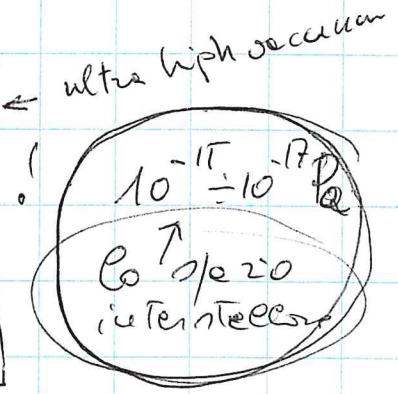 ← ultra high vacuum
!
10⁻¹⁵ ÷ 10⁻¹⁷ Pa
↑
lo spazio
interstellare